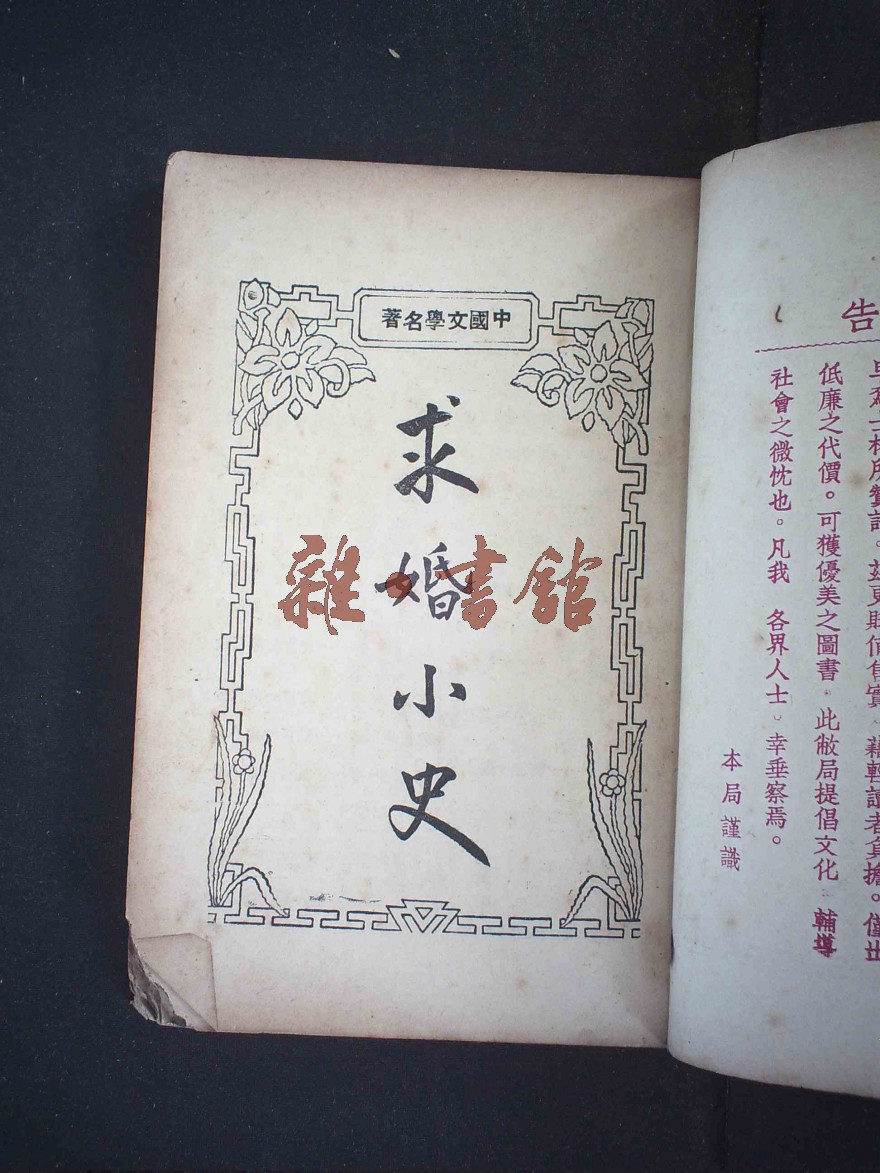 中國文學名著
求婚小史
雜·書館
告
且爲士林所贊許。茲更賤價售實。藉輕讀者負擔。僅出
低廉之代價。可獲優美之圖書。此敝局提倡文化 輔導
社會之微忱也。凡我 各界人士。幸垂察焉。
本局謹識